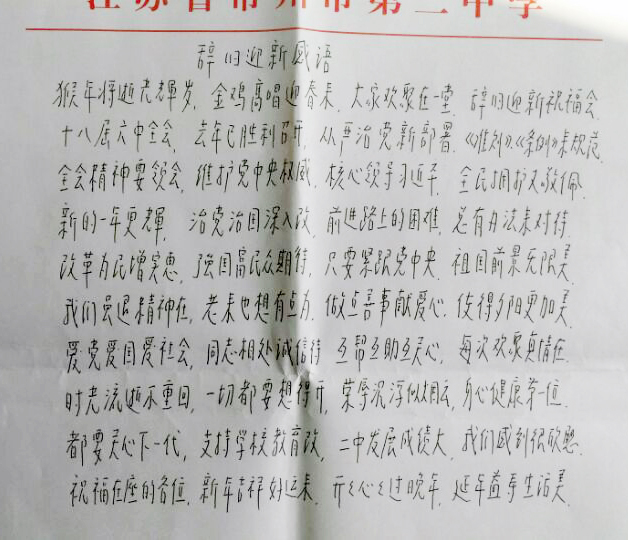 江苏省常州市第二中学
辞旧迎新感语
猴年将逝光辉岁，金鸡高唱迎春来，大家欢聚在一堂，辞旧迎新祝福会。
十八届六中全会，去年已胜利召开，从严治党新部署，《准则》《条例》来规范。
全会精神要领会，维护党中央权威，核心领导习近平，全民拥护又敬佩。
新的一年更辉，治党治国深入改，前进路上的困难，总有办法来对待。
改革为民增实惠，强国富民众期待，只要紧跟党中央，祖国前景无限美。
我们虽退精神在，老来也想有点为，做点善事献爱心，使得夕阳更加美。
爱党爱国爱社会，同志相处诚信待，互帮互助互关心，每次欢聚真情在。
时光流逝不重回，一切都要想得开，荣辱沉浮似烟云，身心健康第一位。
都要关心下一代，支持学校教育改，二中发展成绩大，我们感到很欣慰。
祝福在座的各位，新年吉祥好运来，开々心々过晚年，延年益寿生活美。